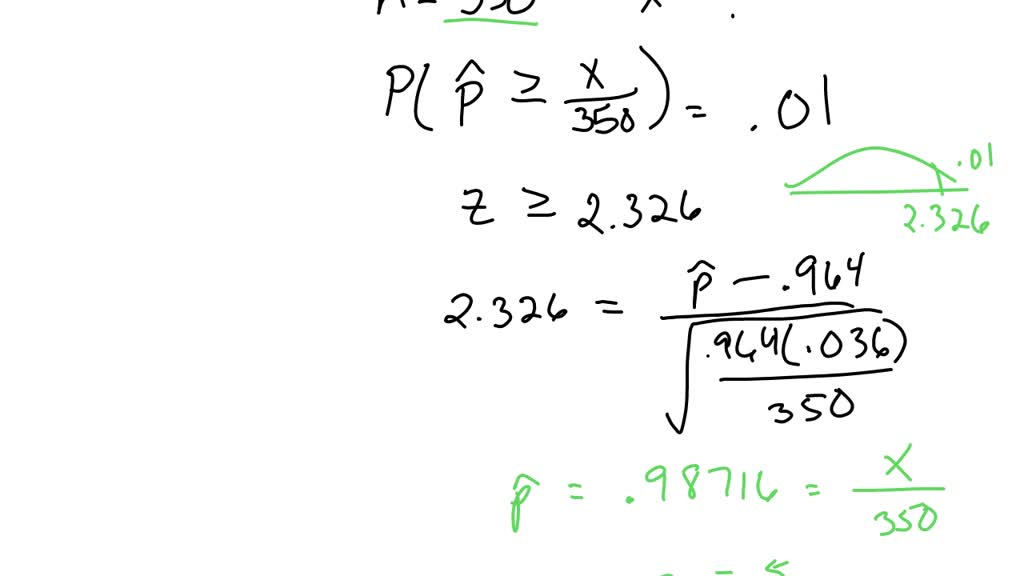 n = 350 x
P( p̂ ≥ x/350 ) = .01
.01
z ≥ 2.326
2.326
2.326 = (p̂ - .964) / √(.964(.036)/350)
p̂ = .98716 = x/350